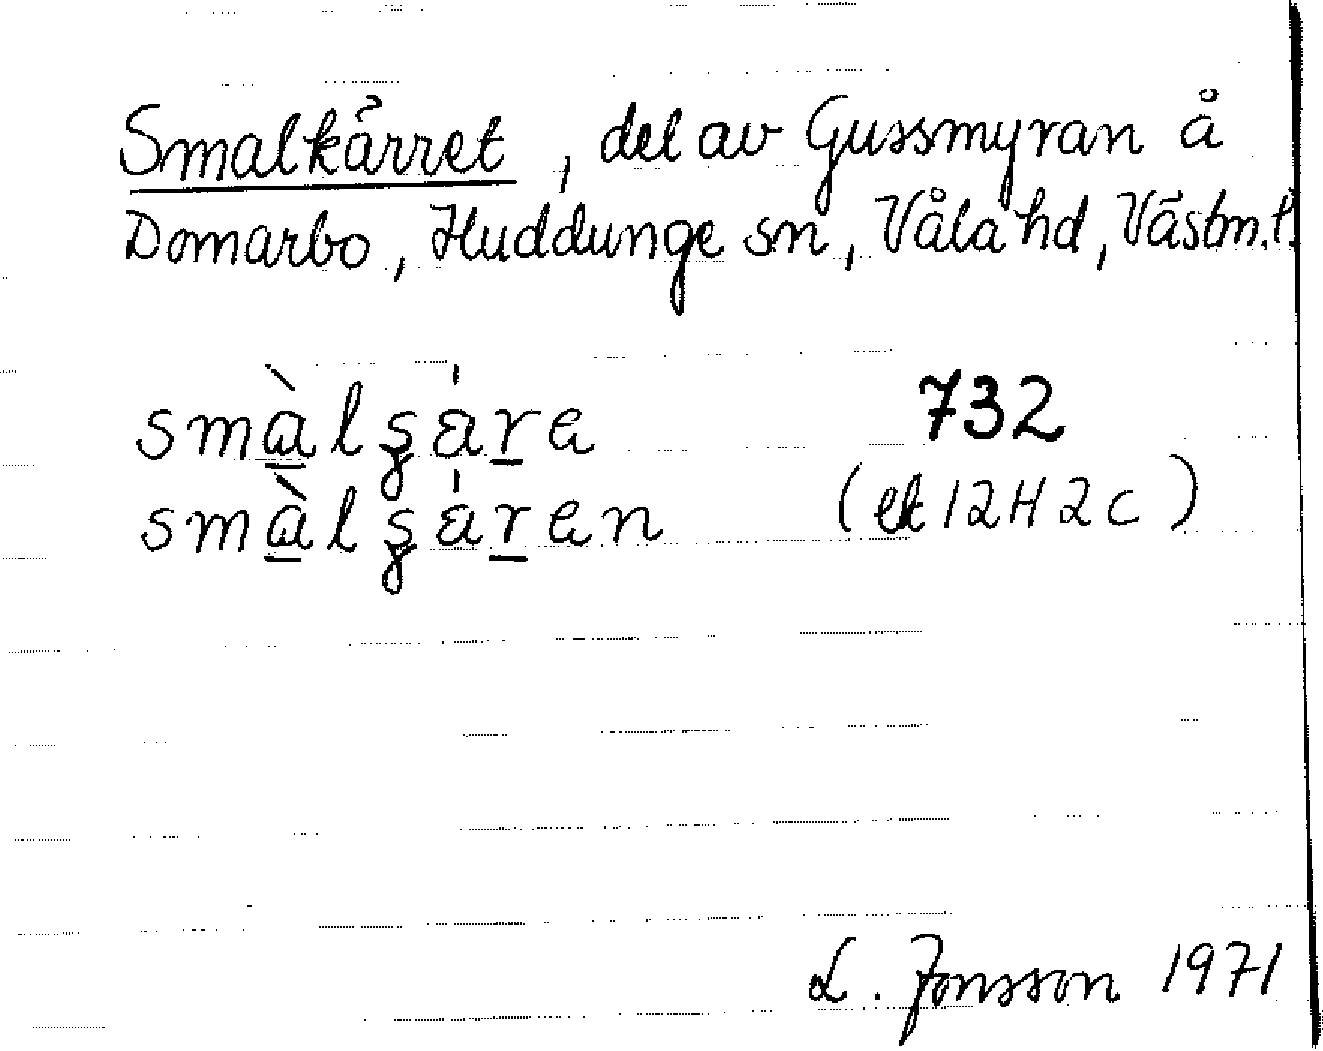 Smalkärret, del av Gussmyran å
Domarbo, Huddunge sn, Våla hd, Västm.l.
smàlʂäre 732
smàlʂären (ek 12H2c)
L. Jonsson 1971